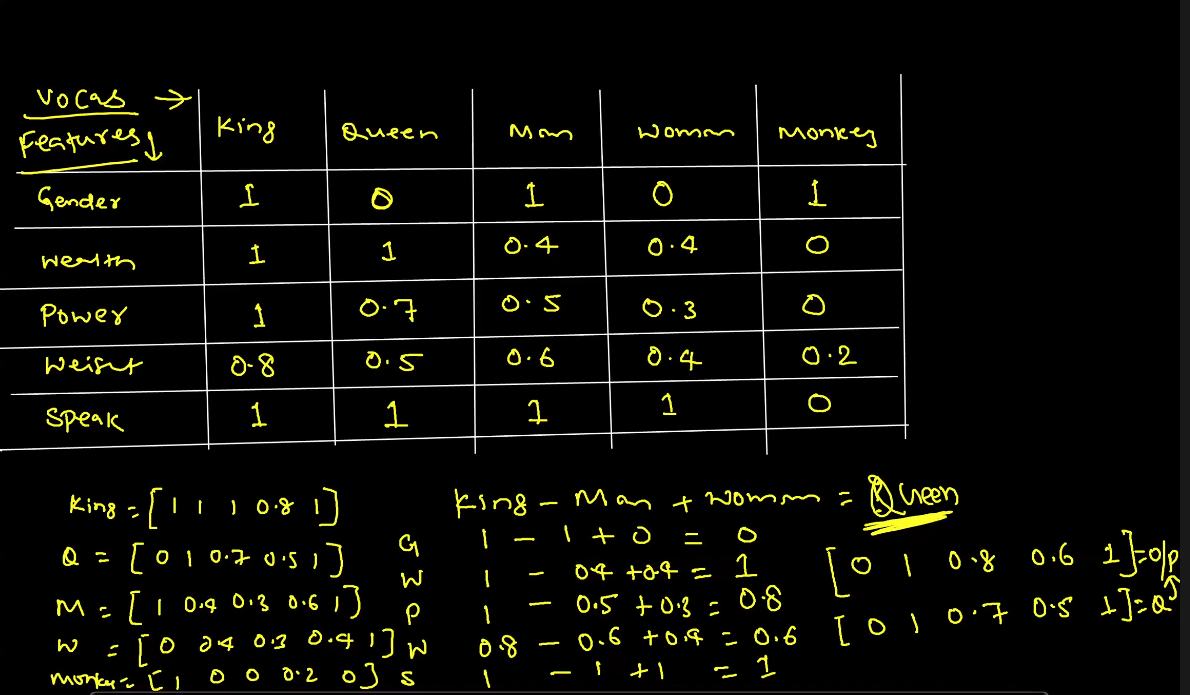 Vocab →
Features ↓ King Queen Man Woman Monkey
Gender 1 0 1 0 1
Wealth 1 1 0.4 0.4 0
Power 1 0.7 0.5 0.3 0
Weight 0.8 0.5 0.6 0.4 0.2
Speak 1 1 1 1 0
King = [1 1 1 0.8 1]
Q = [0 1 0.7 0.5 1]
M = [1 0.4 0.3 0.6 1]
W = [0 0.4 0.3 0.4 1]
Monkey = [1 0 0 0.2 0]
King - Man + Woman = Queen
G 1 - 1 + 0 = 0
W 1 - 0.4 + 0.4 = 1
P 1 - 0.5 + 0.3 = 0.8
W 0.8 - 0.6 + 0.4 = 0.6
S 1 - 1 + 1 = 1
[0 1 0.8 0.6 1] = o/p
[0 1 0.7 0.5 1] = Q